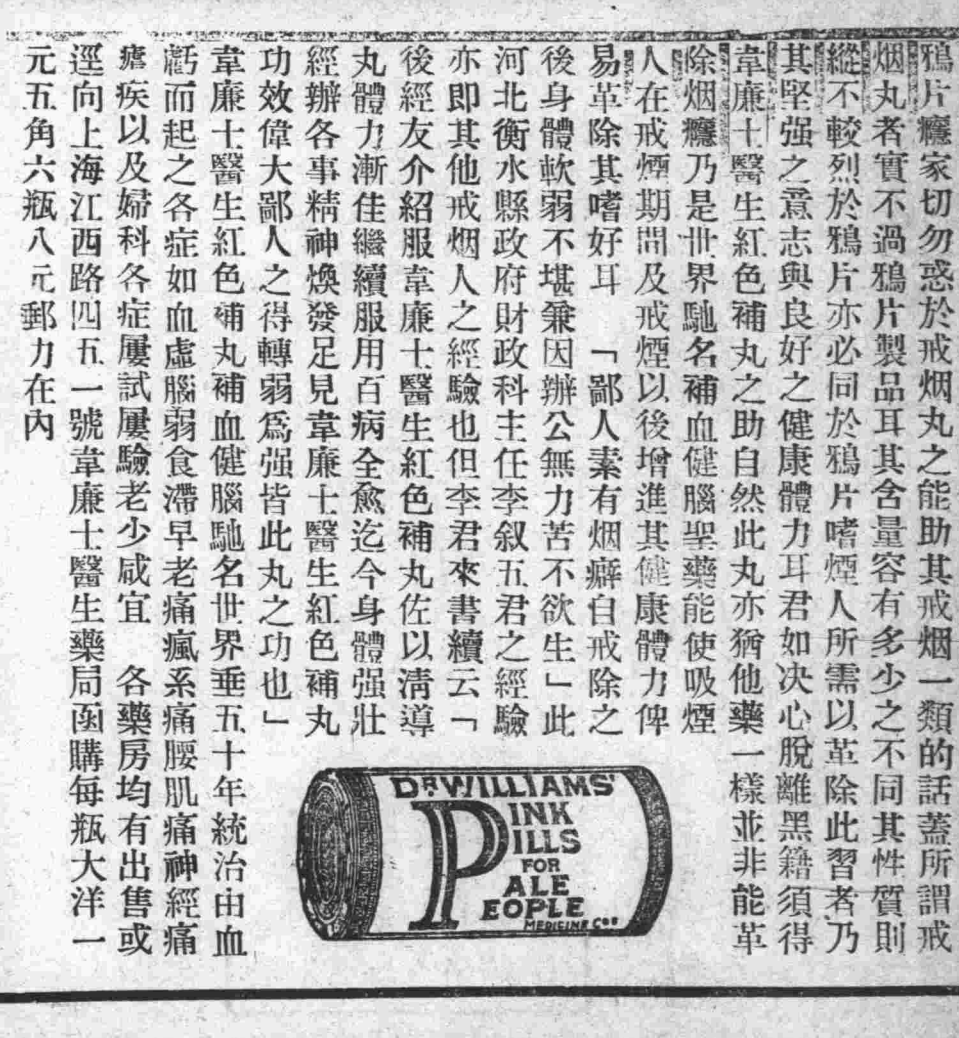 鴉片癮家切勿惑於戒烟丸之能助其戒烟一類的話蓋所謂戒
烟丸者實不過鴉片製品耳其含量容有多少之不同其性質則
縱不較烈於鴉片亦必同於鴉片嗜煙人所需以革除此習者乃
其堅强之意志與良好之健康體力耳君如决心脫離黑籍須得
韋廉士醫生紅色補丸之助自然此丸亦猶他藥一樣並非能革
除烟癮乃是世界馳名補血健腦聖藥能使吸煙
人在戒煙期間及戒煙以後增進其健康體力俾
易革除其嗜好耳 「鄙人素有烟癖自戒除之
後身體軟弱不堪兼因辦公無力苦不欲生」此
河北衡水縣政府財政科主任李叙五君之經驗
亦即其他戒烟人之經驗也但李君來書續云「
後經友介紹服韋廉士醫生紅色補丸佐以淸導
丸體力漸佳繼續服用百病全愈迄今身體强壯
經辦各事精神煥發足見韋廉士醫生紅色補丸
功效偉大鄙人之得轉弱爲强皆此丸之功也」
韋廉士醫生紅色補丸補血健腦馳名世界垂五十年統治由血
虧而起之各症如血虛腦弱食滯早老痛瘋系痛腰肌痛神經痛
瘧疾以及婦科各症屢試屢驗老少咸宜 各藥房均有出售或
逕向上海江西路四五一號韋廉士醫生藥局函購每瓶大洋一
元五角六瓶八元郵力在內
DR WILLIAMS'
PINK
PILLS
FOR
PALE
PEOPLE
MEDICINE Co